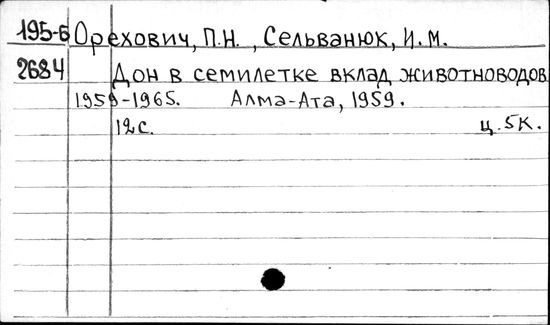 195-6 Орехович, П.Н., Сельванюк, И.М.
2684 Дон в семилетке вклад животноводов
1959-1965. Алма-Ата, 1959.
12с. ц. 5К.